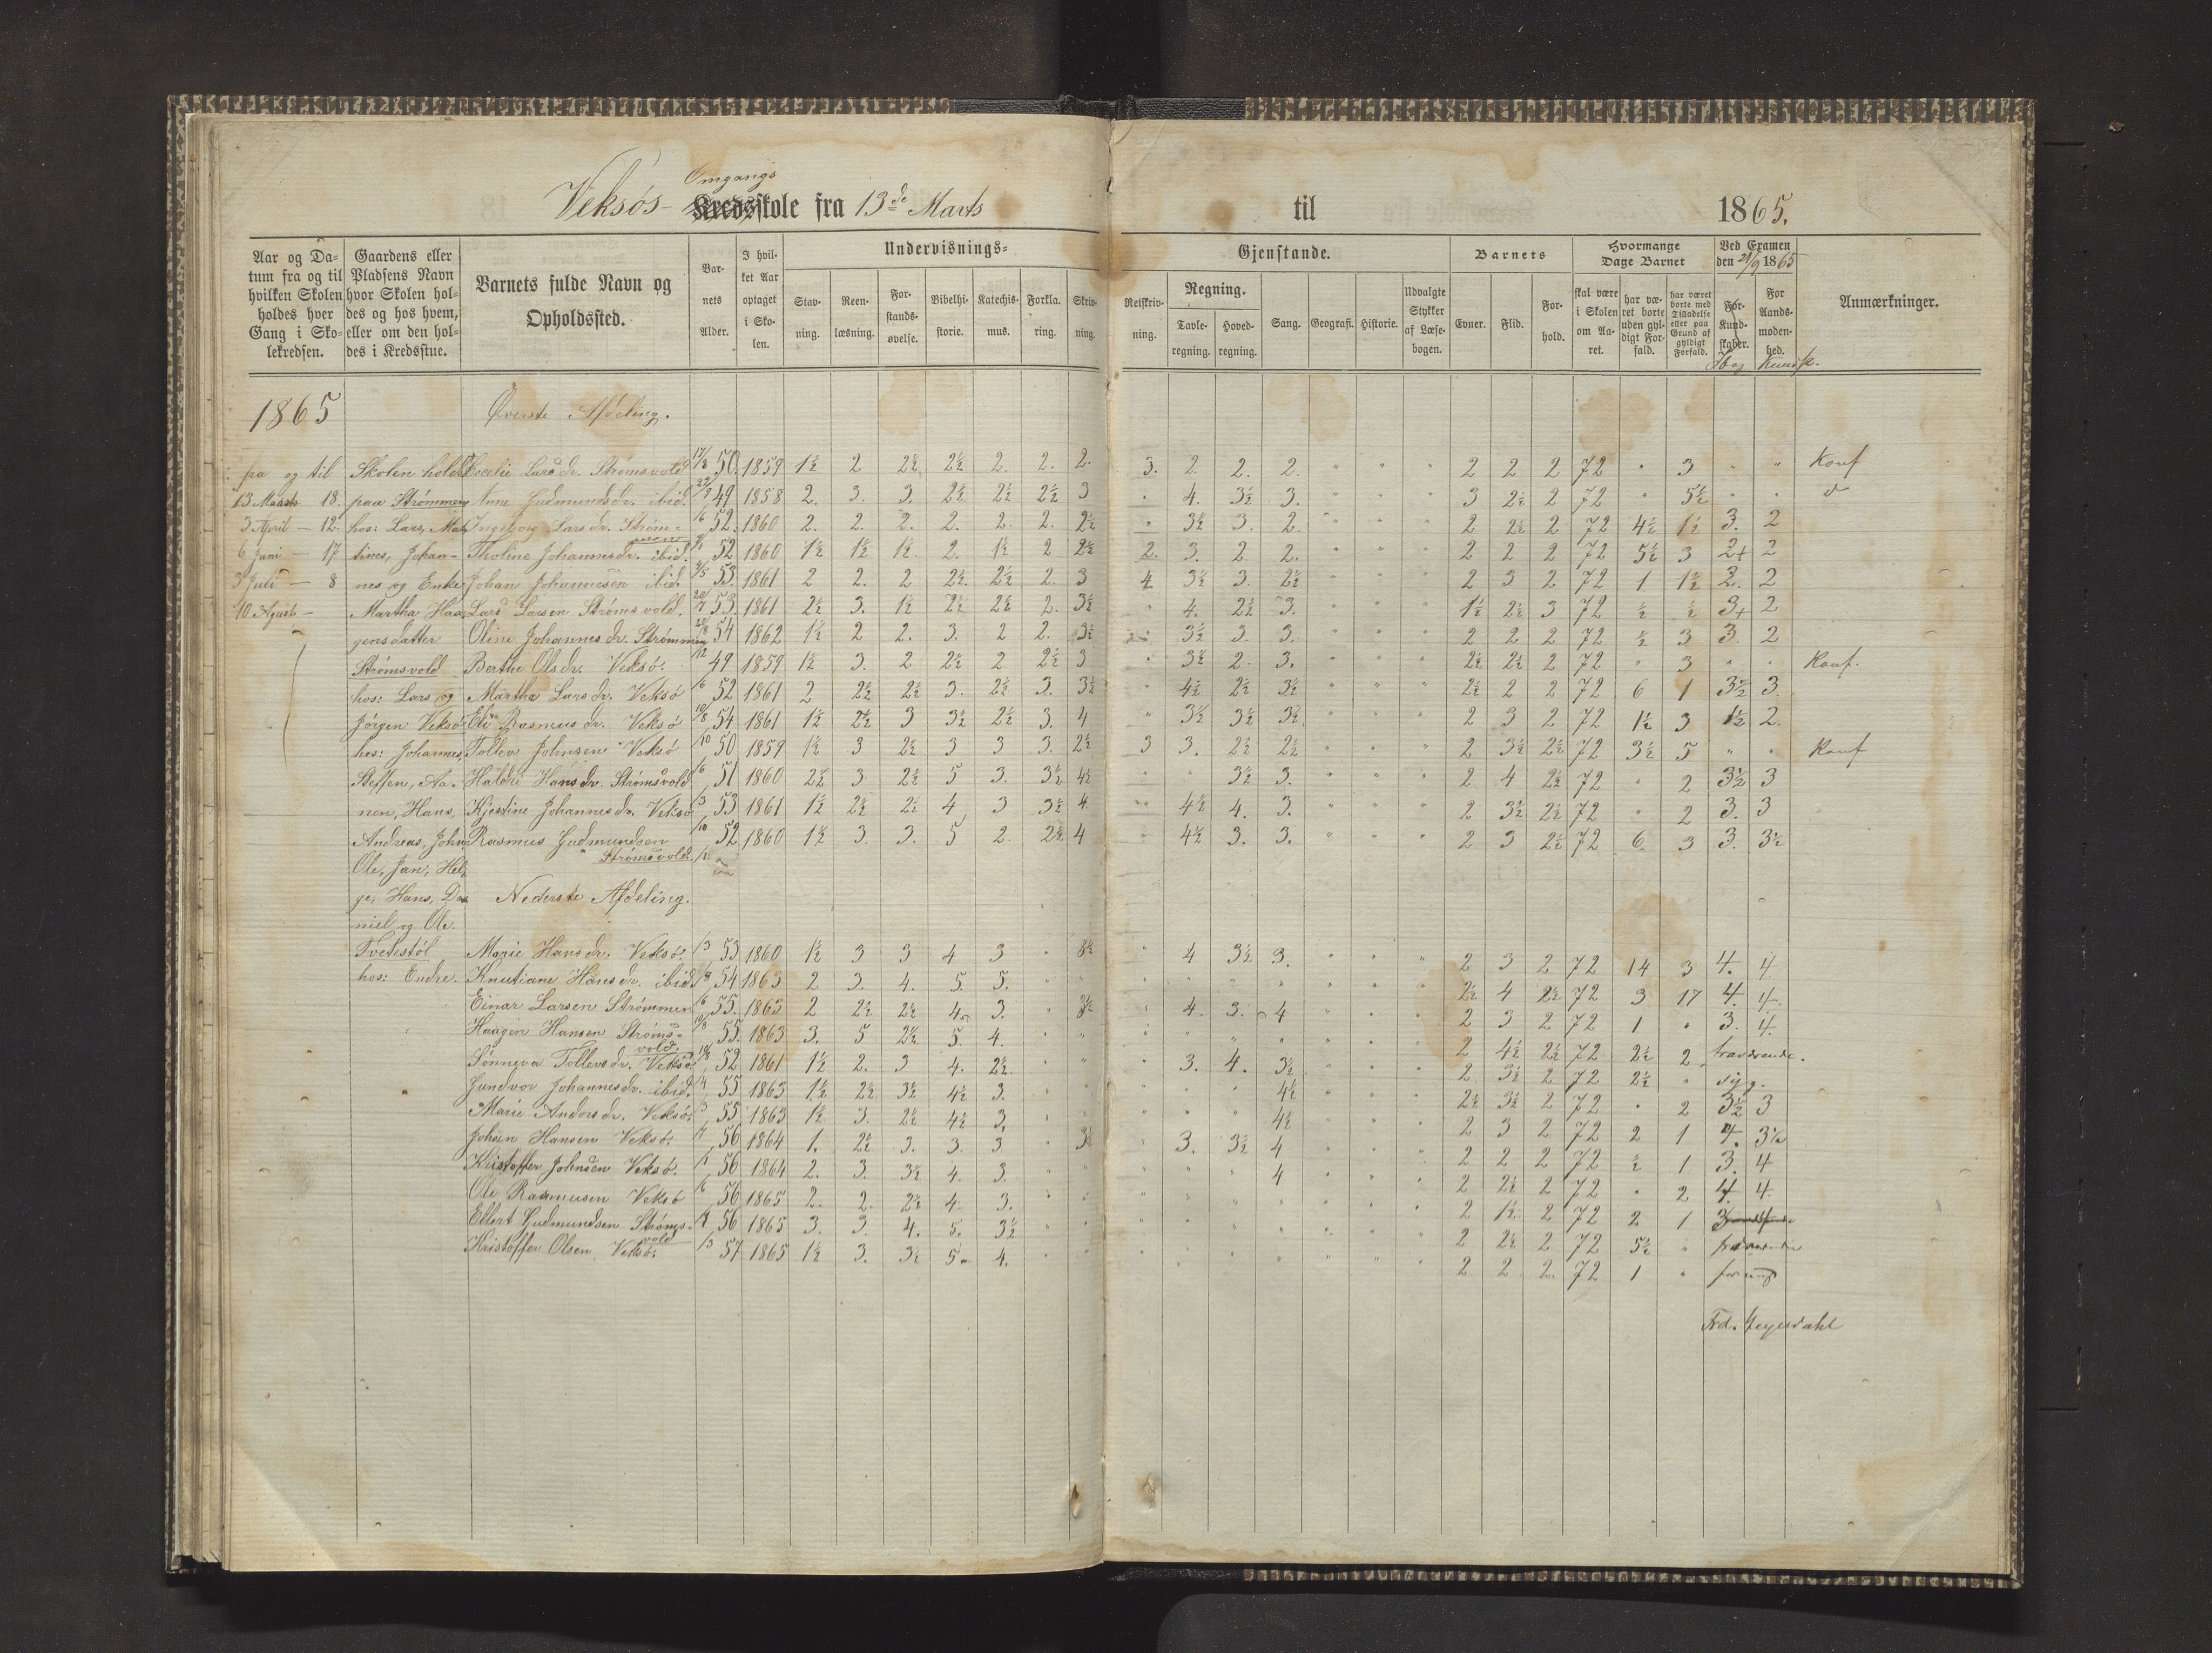 Omgangs
Veksøs- Kredsskole fra 13de Marts til 1865.
Aar og Datum fra og til hvilken Skolen holdes hver Gang i Skolekredsen.
Gaardens eller Pladsens Navn hvor Skolen holdes og hos hvem, eller om den holdes i Kredsstue.
Barnets fulde Navn og Opholdssted.
Barnets Alder.
I hvilket Aar optaget i Skolen.
Undervisnings- Gjenstande.
Stavning. Reenlæsning. Forstandsøvelse. Bibelhistorie. Katechismus. Forklaring. Skrivning.
Retskrivning. Regning. Tavleregning. Hovedregning. Sang. Geografi. Historie. Udvalgte Stykker af Læsebogen.
Barnets Evner. Flid. Forhold.
Hvormange Dage Barnet
skal være i Skolen om Aaret. har været borte uden gyldigt Forfald. har været borte med Tilladelse eller paa Grund af gyldigt Forfald.
Ved Examen den 21/9 1865
For Kundskaber. For Aandsmodenhed.
Anmærkninger.
1865 Øverste Afdeling.
fra og til Skolen holdt Larsdr. Strømsvold 50. 1859 1½ 2 2½ 2½ 2. 2. 2. 3. 2. 2. 2. " " " 2 2 2 72 " 3 " " Konf
13 Marts 18. paa Strømmen Anne Gudmundsdr. ibid. 49 1858 2. 3. 3. 2½ 2½ 2½ 3 " 4. 3½ 3. " " " 3 2½ 2 72 " 5½ " "
3 April - 12. hos: Lars, Mar- Ingeborg Larsdr. Strøm- 52. 1860 2. 2. 2. 2. 2. 2. 2½ " 3½ 3. 2. " " " 2 2½ 2 72 4½ 1½ 3. 2
6 Juni - 17 tines, Johan- Tholine Johannesdr. ibid. 52 1860 1½ 1½ 1½ 2. 1½ 2 2½ 2. 3. 2 2. " " " 2 2 2 72 5½ 3 2+ 2
3 Juli - 8 nes og Enke Johan Johannesen ibid. 53. 1861 2 2. 2 2½ 2½ 2. 3 4 3½ 3. 2½ " " " 2 3 2 72 1 1½ 2. 2
10 August - Martha Haa- Lars Larsen Strømsvold. 53. 1861 2½ 3. 1½ 2½ 2½ 2. 3½ " 4. 2½ 3. " " " 1½ 2½ 3 72 ½ ½ 3+ 2
gensdatter Oline Johannesdr. Strømmen 54 1862 1½ 2 2. 3. 2 2. 3½ " 3½ 3. 3. " " " 2 2 2 72 ½ 3 3. 2
Strømsvold Berthe Olsdr. Veksø. 49 1859 1½ 3. 2 2½ 2 2½ 3 " 3½ 2. 3. " " " 2½ 2½ 2 72 " 3 " " Konf.
hos: Lars og Martha Larsdr. Veksø 52 1861 2 2½ 2½ 3. 2½ 3. 3½ " 4½ 2½ 3½ " " " 2½ 2 2 72 6 1 3½ 3.
Jørgen Veksø Eli Rasmusdr. Veksø 54 1861 1½ 2½ 3 3½ 2½ 3. 4 " 3½ 3½ 3½ " " " 2 3 2 72 1½ 3 1½ 2.
hos: Johannes, Tollev Johnsen Veksø 50 1859 1½ 3 2½ 3 3 3. 2½ 3 3. 2½ 2½ " " " 2 3½ 2½ 72 3½ 5 " " Konf
Steffen, Aa- Haldri Hansdr. Strømsvold 51 1860 2½ 3 2½ 5 3. 3½ 4½ " " 3½ 3. " " " 2 4 2½ 72 " 2 3½ 3
nen, Hans, Kjestine Johannesdr. Veksø 53 1861 1½ 2½ 2½ 4 3 3½ 4. " 4½ 4. 3. " " " 2 3½ 2½ 72 " 2 3. 3
Andreas, John, Rasmus Gudmundsen 52 1860 1½ 3. 3. 5 2. 2½ 4 " 4½ 3. 3. " " " 2 3 2½ 72 6 3 3. 3½
Strømsvold
Ole, Jan, Hel-
ge, Hans, Da- Nederste Afdeling.
niel og Ole.
Tvedestøl Marie Hansdr. Veksø. 53 1860 1½ 3 3 4 3 " " 4 3½ 3. " " " 2 3 2 72 14 3 4. 4
hos: Endre. Knutiane Hansdr. ibid. 54 1863 2 3. 4. 5. 5. " " 2½ 4 2½ 72 3 17 4. 4.
Einar Larsen Strømmen 55. 1863 2 2½ 2½ 4. 3. " 4. 3. 4 " " " 2 3 2 72 1 " 3. 4.
Haagen Hansen Strøms-
vold. 55. 1863 3. 5 2½ 5. 4. " " 2 4½ 2½ 72 2½ 2 fraværende.
Sønneva Tollevsdr. Veksø. 52 1861 1½ 2. 3 4. 2½ " " 3. 4. 3½ " " " 2 3½ 2 72 2½ " syg.
Gundvor Johannesdr. ibid. 55 1863 1½ 2½ 3½ 4½ 3. " " 4½ 2½ 3½ 2 72 " 2 3½ 3
Marie Andersdr. Veksø. 55 1863 1½ 3. 2½ 4½ 3. " " 4½ 2 3 2 72 2 1 4. 3½
Johan Hansen Veksø. 56 1864 1. 2½ 3. 3. 3 " 3½ 3. 3½ 4 " " " 2 2 2 72 ½ 1 3. 4
Kristoffer Johnsen Veksø. 56 1864 2. 3. 3½ 4. 3. " " 4 2 2½ 2 72 " 2 4. 4.
Ole Rasmusen Veksø 56 1865 2. 2. 2½ 4. 3. " " 2 1½ 2 72 2 1
Ellert Gudmundsen Strøms-
vold 56 1865 3. 3. 4. 5. 3½ " " 2 2½ 2 72 5½ " fraværende
Kristoffer Olsen, Veksø. 57 1865 1½ 3. 3½ 5 4. " " 2 2 2. 72 1 " for ung